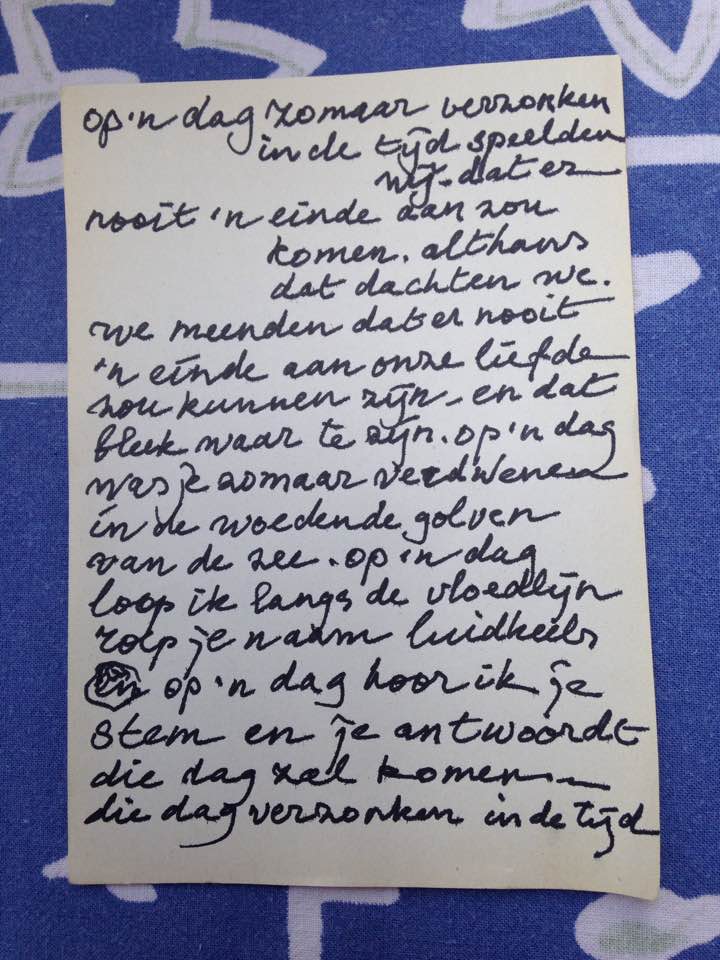 op 'n dag zomaar verzonken
in de tijd speelden
wij - dat er
nooit 'n einde aan zou
komen. althans
dat dachten we.
we meenden dat er nooit
'n einde aan onze liefde
zou kunnen zijn - en dat
bleek waar te zijn. op 'n dag
was je zomaar verdwenen
in de woedende golven
van de zee. op 'n dag
loop ik langs de vloedlijn
roep je naam luidkeels
op 'n dag hoor ik je
stem en je antwoordt
die dag zal komen -
die dag verzonken in de tijd